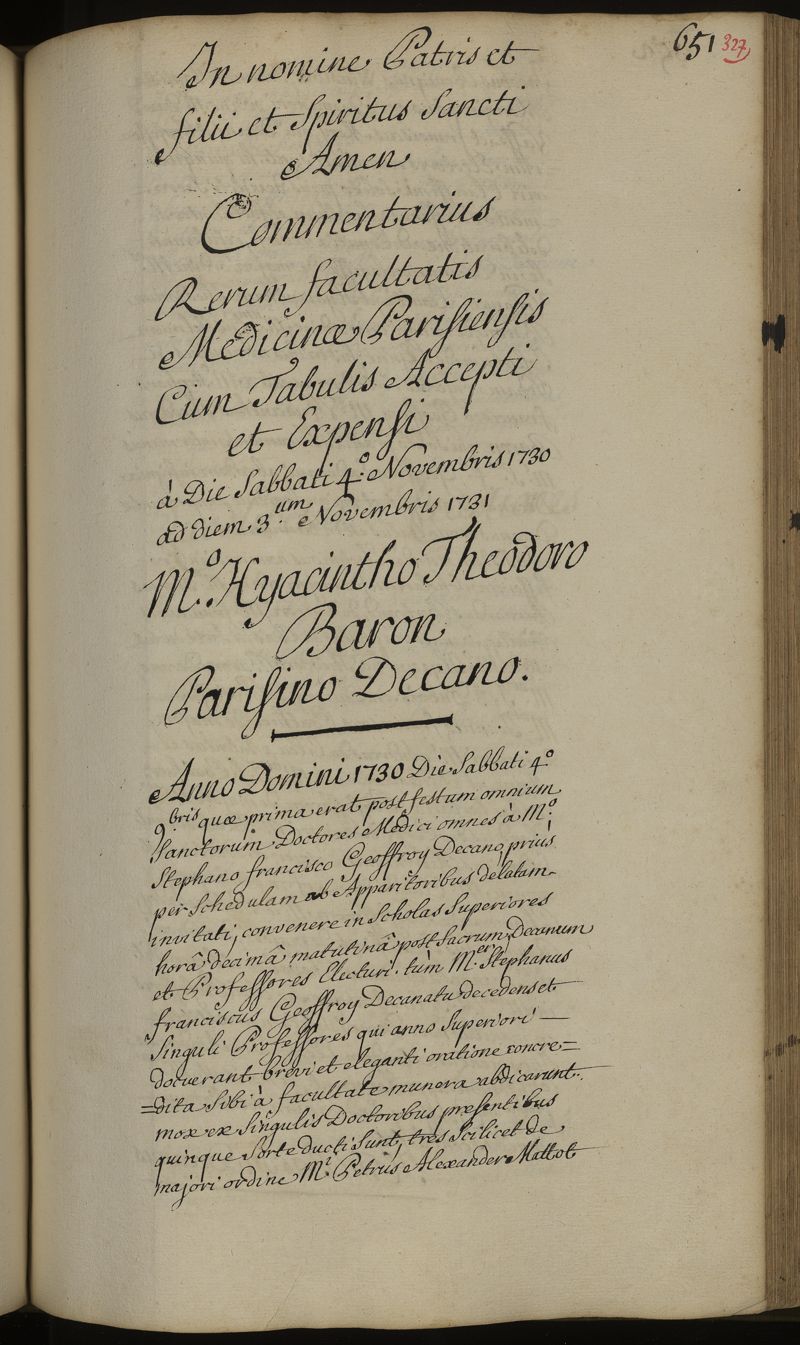 651 327
In nomine Patris et
filii et Spiritus Sancti
Amen
Commentarius
Rerum facultatis
Medicinæ Parisiensis
Cum Tabulis Accepti
et Expensi
à Die Sabbati 4.º Novembris 1730
ad diem 3.um Novembris 1731
M.º Hyacintho Theodoro
Baron
Parisino Decano.
Anno Domini 1730 Die Sabbati 4º
9bris quæ prima erat post festum omnium
Sanctorum Doctores Medici omnes à M.º
Stephano francisco Geoffroy Decano, prius
per Schedulam ab Apparitoribus delatam
invitati, convenere in Scholas Superiores
horâ decimâ matutinâ post Sacrum, Decanum
et Professores Electuri. tùm M.er Stephanus
franciscus Geoffroy Decanatu decedens et
Singuli Professores qui anno Superiori
docuerant brevi et eleganti oratione concre=
=dita Sibi à facultate munera abdicarunt.
mox ex Singulis Doctoribus præsentibus
quinque Sorte ducti Sunt, tres Scilicet de
majori ordine M.r Petrus Alexander Mattot